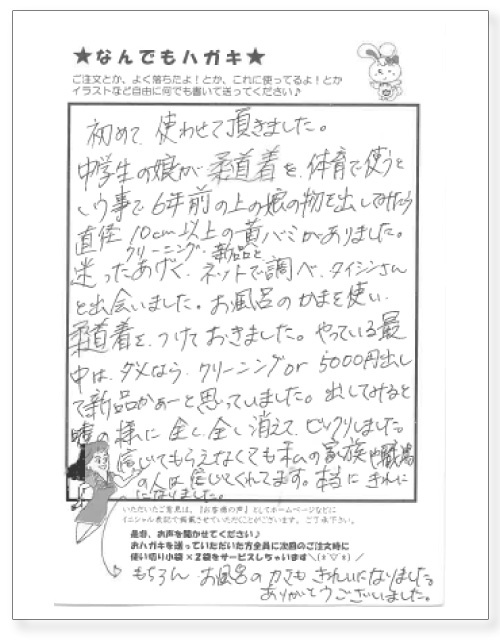 ★なんでもハガキ★
ご注文とか、よく落ちたよ！とか、これに使ってるよ！とか
イラストなど自由に何でも書いて送ってください♪
初めて、使わせて頂きました。
中学生の娘が柔道着を、体育で使うと
いう事で6年前の上の娘の物を出してみたら
直径10cm以上の黄バミがありました。
クリーニング、新品と
迷ったあげく、ネットで調べ、タイシンさん
と出会いました。お風呂のかまを使い、
柔道着を、つけておきました。やっている最
中は、ダメなら、クリーニングor 5000円出し
て新品かぁーと思っていました。出してみると
嘘の様に全し全し消えて、ビックリしました。
信じてもらえなくても私の家族や職場
の人は信じてくれてます。本当にきれに
になりました。
いただいたご意見は、『お客様の声』としてホームページなどに
イニシャル表記で掲載させていただくことがございます。ご了承下さい。
是非、お声を聞かせてください♪
おハガキを送っていただいた方全員に次回のご注文時に
使い切り小袋×2袋をサービスしちゃいます＼(*´▽`*)／
もちろん お風呂のカマもきれいになりました。
ありがとうございました。